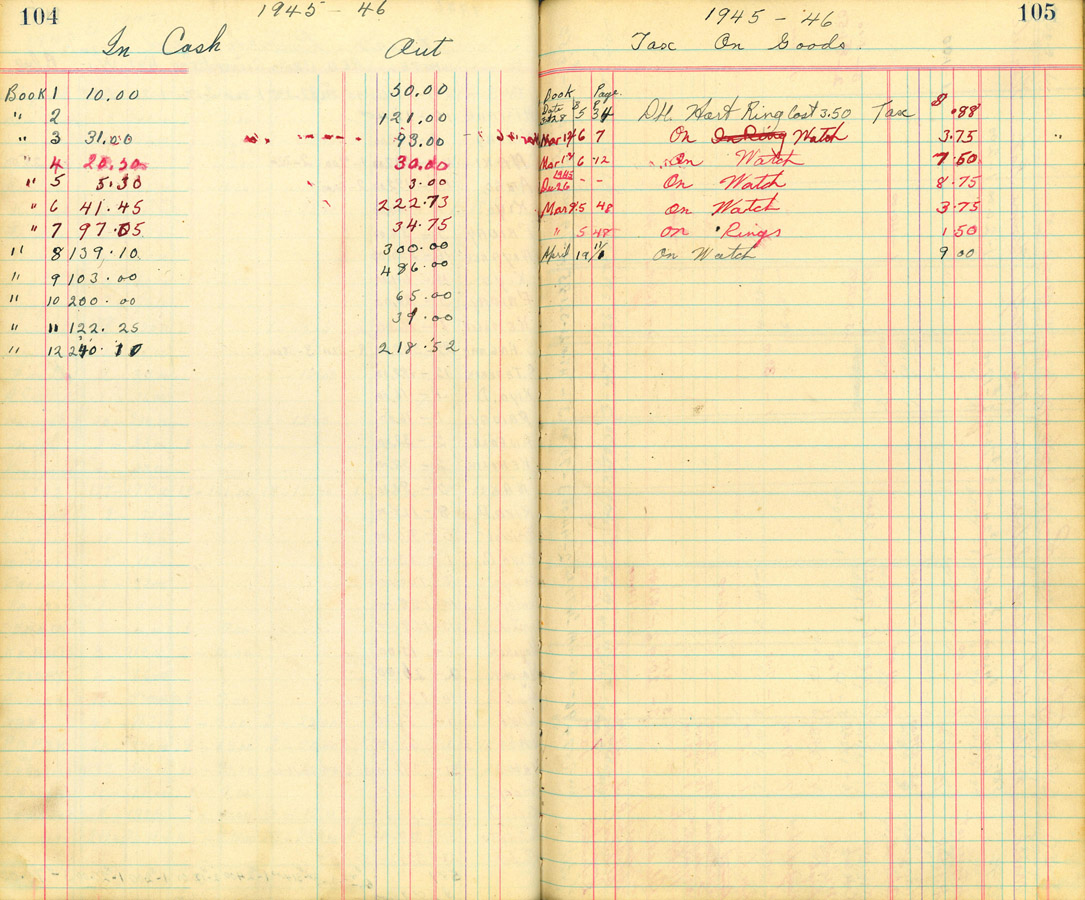 104
1945 - 46
In Cash Out
Book 1 10.00 50.00
" 2 121.00
" 3 31.00 93.00
" 4 20.50 30.00
" 5 5.30 3.00
" 6 41.45 222.73
" 7 97.05 34.75
" 8 139.10 300.00
" 9 103.00 486.00
" 10 200.00 65.00
" 11 122.25 39.00
" 12 240.10 218.52
1945 - '46
105
Tax On Goods
Book Page
Date
5 34 D.H. Hart Ring Cost 3.50 Tax $ .88
Mar 6 7 On Watch 3.75
Mar 6 - 12 On Watch 7.50
1945
Dec 26 - - On Watch 8.75
Mar 9 5 48 On Watch 3.75
" 5 48 On Rings 1.50
April On Watch 9 00